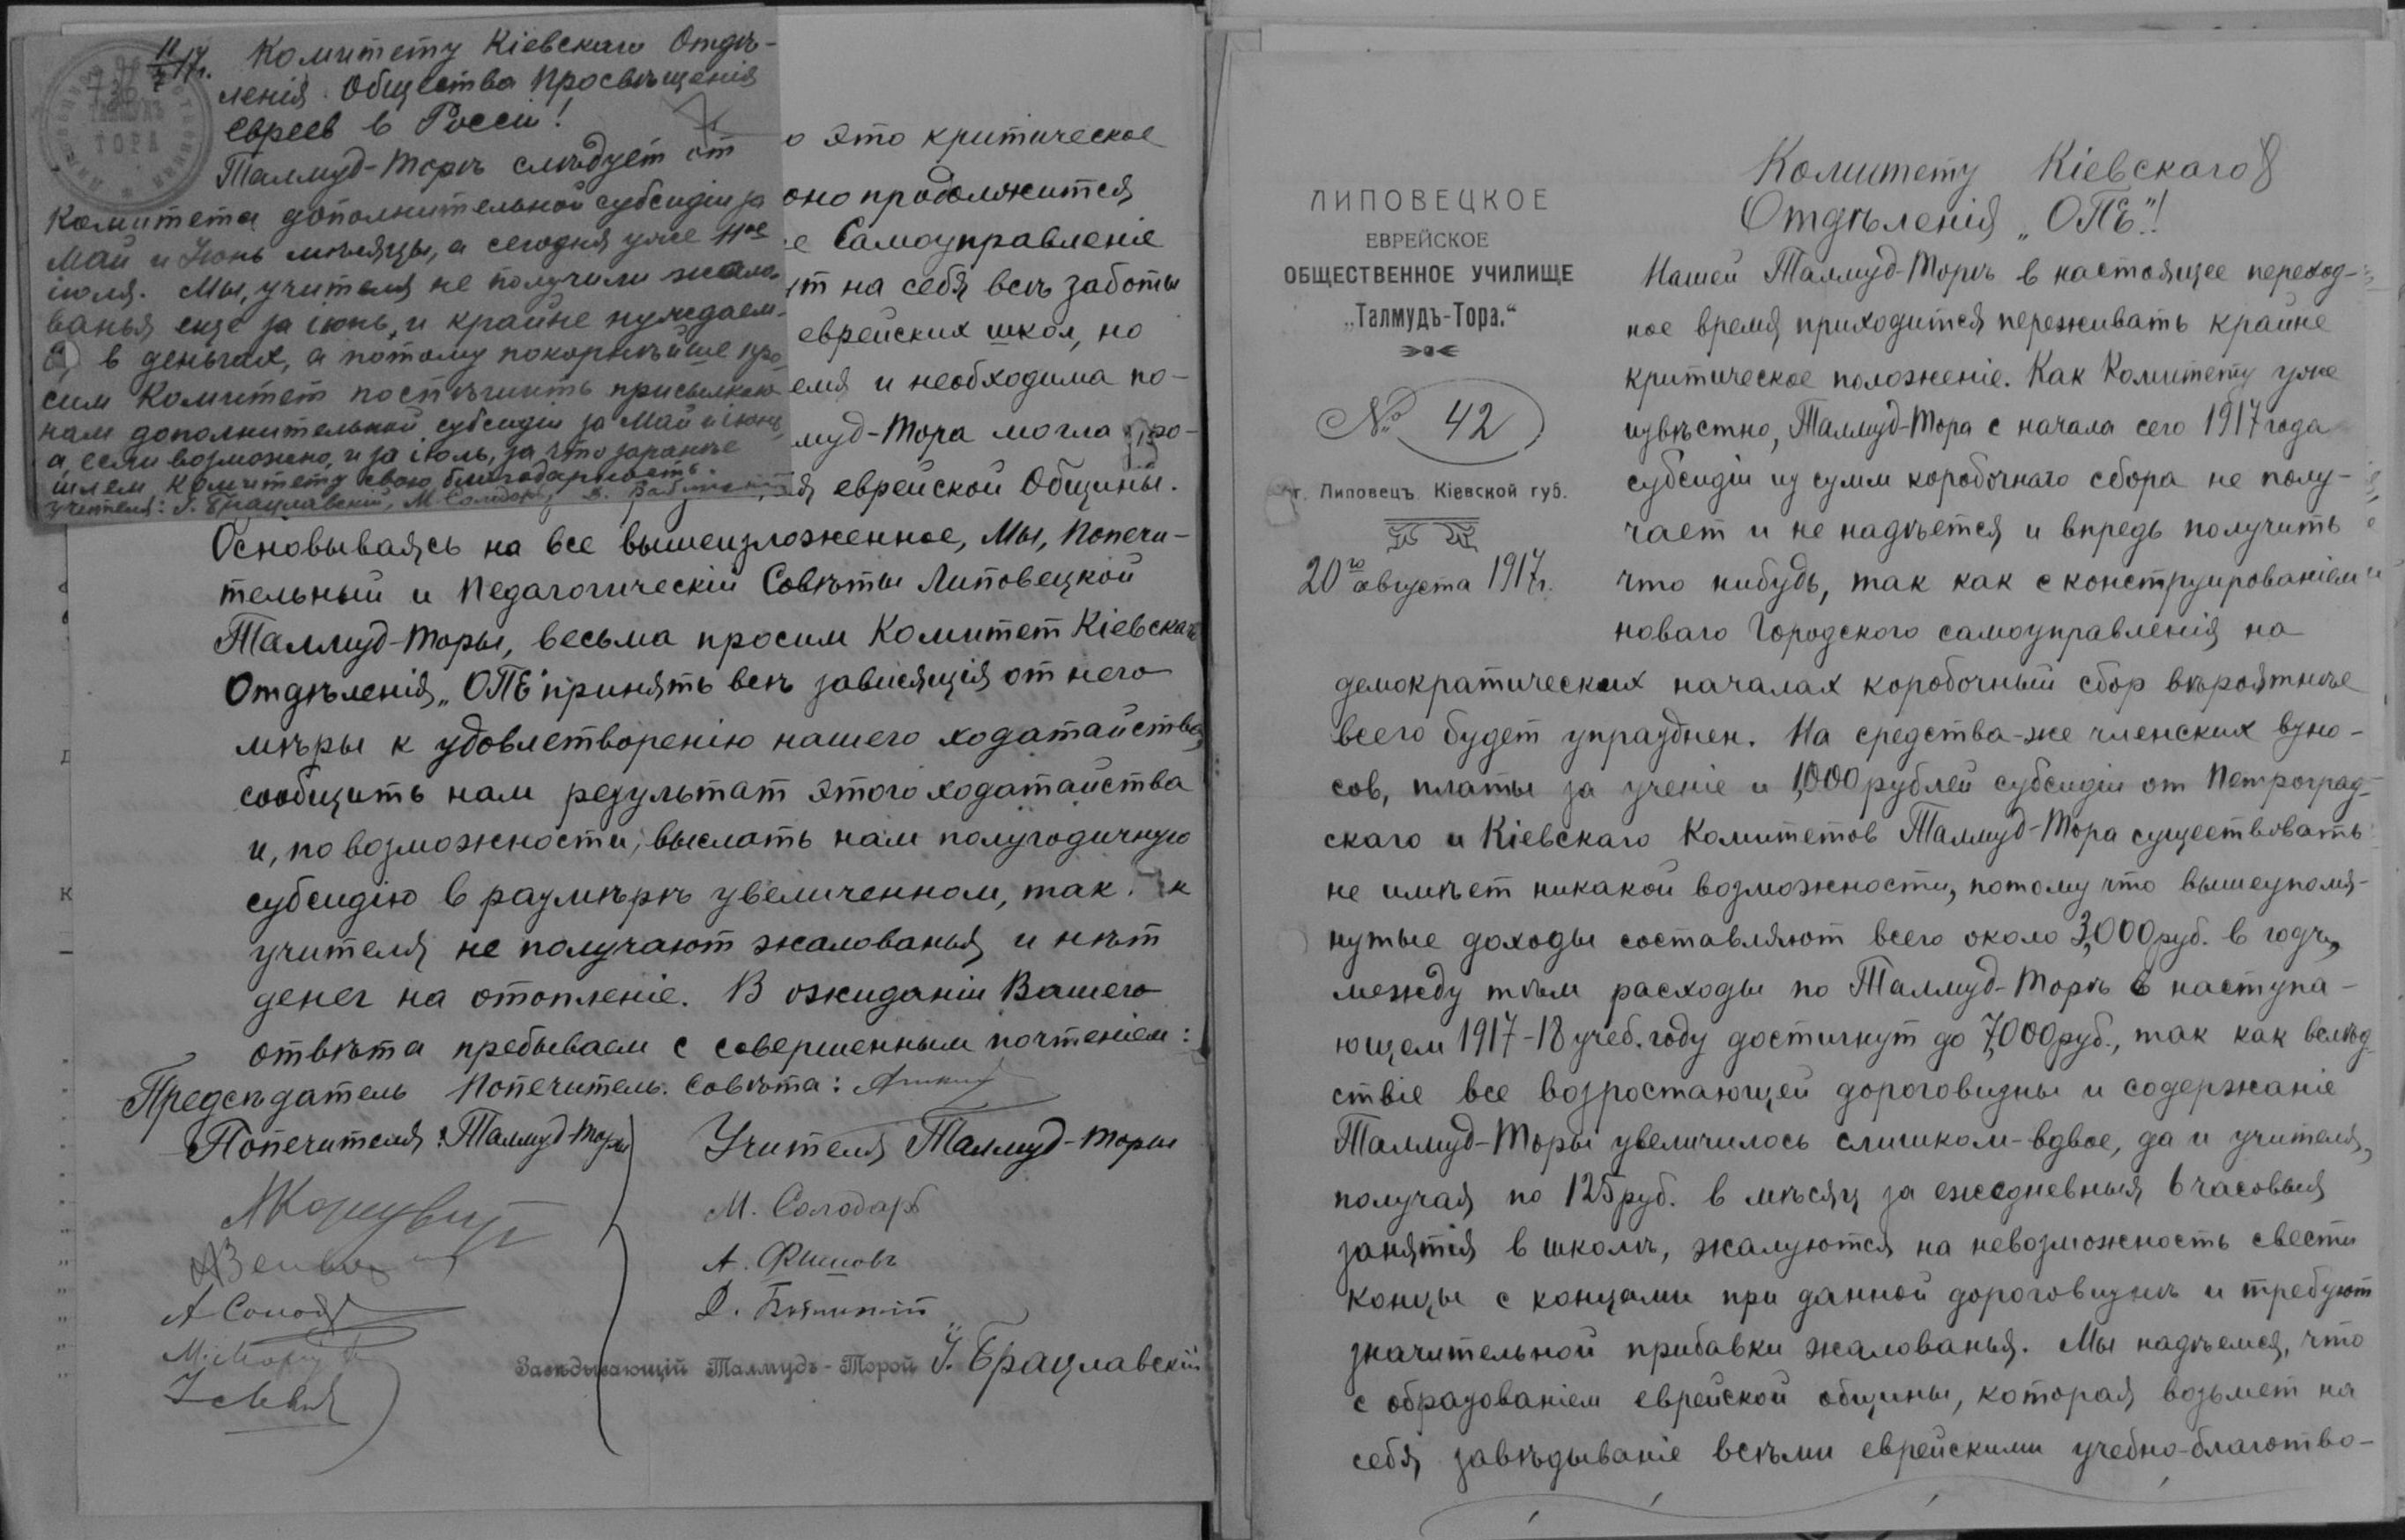 11/7 17г. Комитету Кіевскаго Отдѣ-
ленія Общества Просвѣщенія
Евреев в Россіи!
Таллмуд-Торѣ слѣдует от
Комитета дополнительной субсидіи за
Май и Іюнь мѣсяцы, а сегодня уже 11ое
іюля. Мы, учителя не получили жало-
ванья еще за іюнь, и крайне нуждаем-
ся в деньгах, а потому покорнѣйше про-
сим Комитет поспѣшить присылкою
нам дополнительной субсидіи за Май и іюнь,
а, если возможно, и за іюль, за что заранѣе
шлем Комитету свою благодарность.
учителя: І. Брацлавскій, М. Солодарь,
ТОРА
о это критическое
оно продолжится
е Самоуправленіе
ут на себя всѣ заботы
еврейских школ, но
емя и необходима по-
муд-Тора могла про-
ія еврейской Общины.
Основываясь на все вышеизложенное, Мы, Попечи-
тельный и Педагогическій Совѣты Липовецкой
Таллмуд-Торы, весьма просим Комитет Кіевскаго
Отдѣленія „ОПЕ" принять всѣ зависящія от него
мѣры к удовлетворенію нашего ходатайства,
сообщить нам результат этого ходатайства
и, по возможности, выслать нам полугодичную
субсидію в размѣрѣ увеличенном, так к
учителя не получают жалованья и нѣт
денег на отопленіе. В ожиданіи Вашего
отвѣта пребываем с совершенным почтеніем:
Предсѣдатель Попечитель. Совѣта:
Попечителя Таллмуд-Торы
Учителя Таллмуд-Торы
М. Солодарь
А.
Д.
Завѣдывающій Талмудъ-Торой І. Брацлавскій
ЛИПОВЕЦКОЕ
ЕВРЕЙСКОЕ
ОБЩЕСТВЕННОЕ УЧИЛИЩЕ
„Талмудъ-Тора."
№ 42
г. Липовецъ Кіевской губ.
20го августа 1917г.
Комитету Кіевскаго
Отдѣленія „ОПЕ"!
Нашей Таллмуд-Торѣ в настоящее переход-
ное время приходится переживать крайне
критическое положеніе. Как Комитету уже
извѣстно, Таллмуд-Тора с начала сего 1917 года
субсидіи из сумм коробочнаго сбора не полу-
чает и не надѣется и впредь получить
что нибудь, так как с конструированіем
новаго Городского самоуправленія на
демократических началах коробочный сбор вѣроятнѣе
всего будет упразднен. На средства-же членских взно-
сов, платы за ученіе и 1,000 рублей субсидіи от Петроград-
скаго и Кіевскаго Комитетов Таллмуд-Тора существовать
не имѣет никакой возможности, потому что вышеупомя-
нутые доходы составляют всего около 3,000 руб. в год,
между тѣм расходы по Таллмуд-Торѣ в наступа-
ющем 1917-18 учеб. году достигнут до 7,000 руб., так как вслѣд-
ствіе все возростающей дороговизны и содержаніе
Таллмуд-Торы увеличилось слишком-вдвое, да и учителя,
получая по 125 руб. в мѣсяц за ежедневныя 6 часовыя
занятія в школѣ, жалуются на невозможность свести
концы с концами при данной дороговизнѣ и требуют
значительной прибавки жалованья. Мы надѣемся, что
с образованіем еврейской общины, которая возьмет на
себя завѣдываніе всѣми еврейскими учебно-благотво-